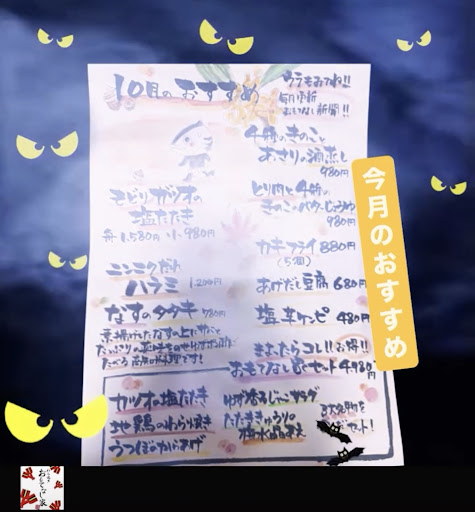 10月のおすすめ
ウラもみてね!!
毎月更新
おもてなし新聞!!
4種のきのこと
あさりの酒蒸し
980円
モドリガツオの
塩たたき
舟1.580円 小980円
とり肉と4種の
きのこのバターじょうゆ
980円
カキフライ 880円
(5個)
ニンニクだれ
ハラミ 1.200円
あげだし豆腐 680円
なすのタタキ 780円
塩辛ケンピ 480円
素揚げしたなすの上に
たべる高知の料理です!
まよったらコレ!!お得!!
おもてなし家セット 4980円
カツオの塩たたき
地鶏のわら焼き
うつぼのからあげ
ゆず香るじゃこサラダ
たたききゅうりの
梅水晶和え
今月のおすすめ
おもてなし家